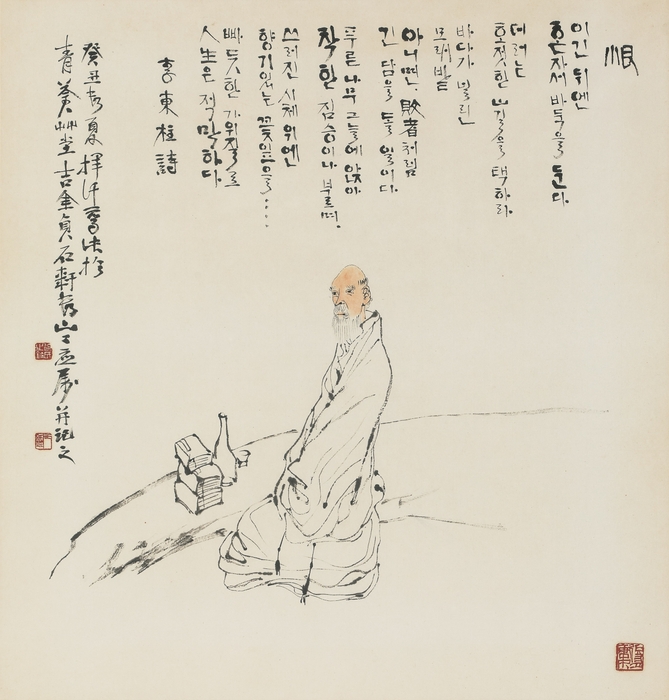 恨
이긴 뒤엔
혼자서 바둑을 둔다.
더러는
호젓한 山길을 택하라.
바다가 널린
모래밭
아니면, 敗者처럼
긴 담을 돌 일이다.
푸른 나무 그늘에 앉아
착한 짐승이나 부르며.
쓰러진 시체 위엔
향기있는 꽃잎을....
빠듯한 가위질로
人生은 적막하다.
李東柱 詩
癸丑 夏 揮汗
艸堂古金貞石軒 山 属 并記之